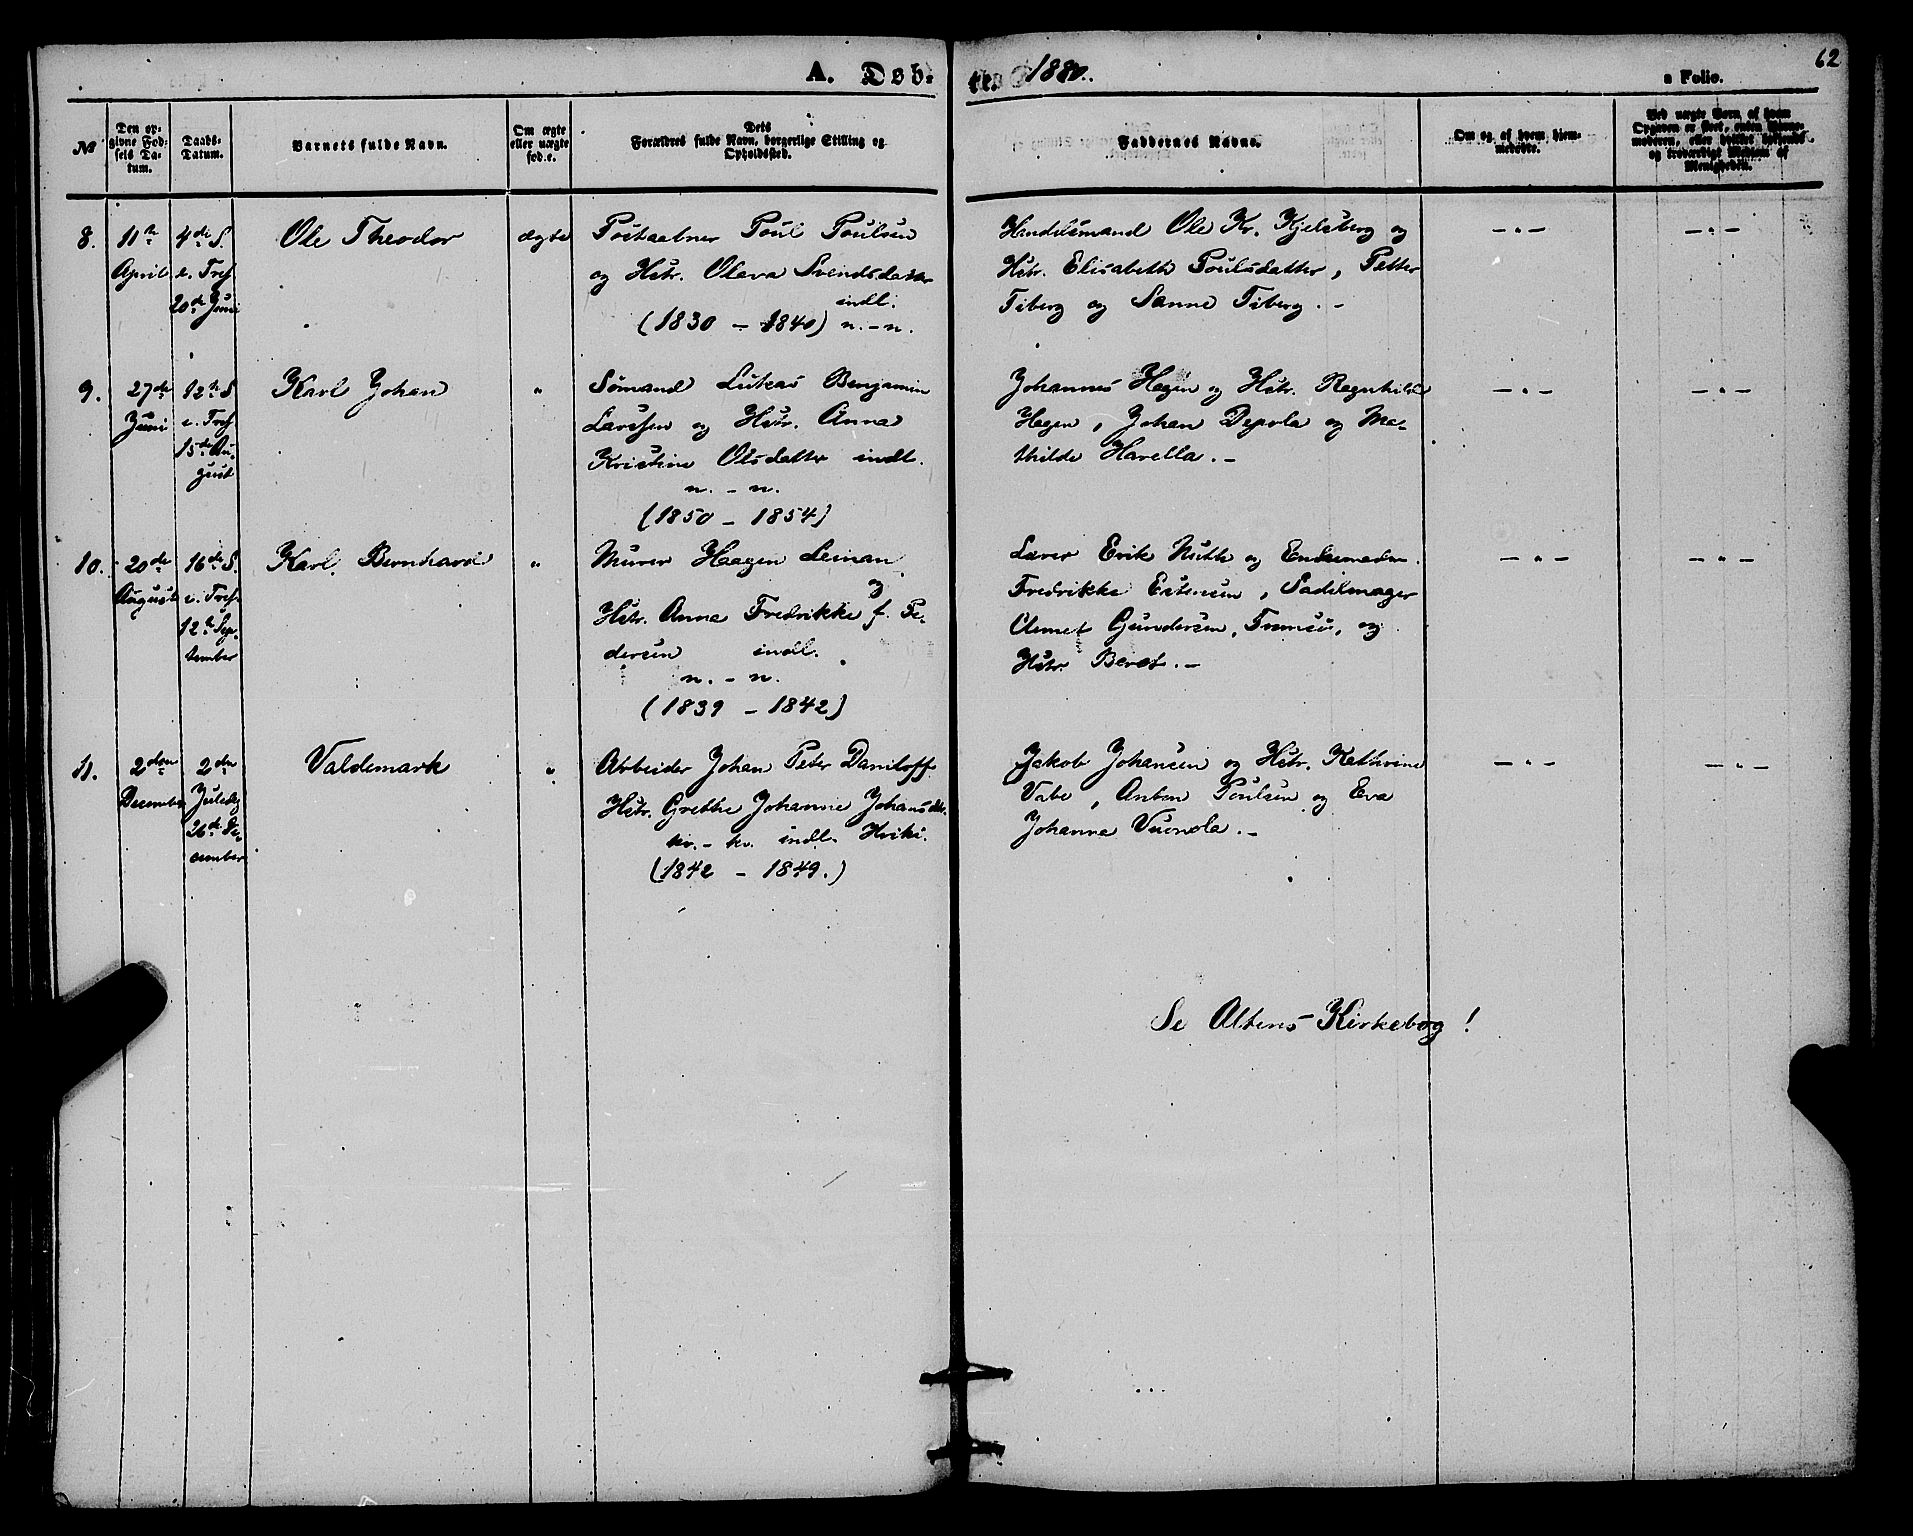 62
A. Døb-
te. 1880.
a Folio.
№
Den op-
givne Fød-
sels Da-
tum.
Daabs-
Datum.
Barnets fulde Navn.
Om ægte
eller uægte
fød.e.
Dets
Forældres fulde Navn, borgerlige Stilling og
Opholdsted.
Faddernes Navne.
Om og af hvem hjem-
medøbt.
Ved uægte Børn af hvem
Opgiven er skeet, enten
og troværdigt Medlem af
Menigheden.
8.
11te
April
4de S.
e. Tref.
20de Juni
Ole Theodor
ægte
Postaabner Poul Poulsen
og Hstr. Olava Svendsdatter
indl.
(1830 – 1840) n. – n.
Handelsmand Ole Kr. Kjelsberg og
Hstr. Elisabeth Poulsdatter, Petter
Tiberg og Sanne Tiberg. –
– " –
– " –
9.
27de
Juni
12te S.
e. Tref.
15de Au-
gust
Karl Johan
"
Sømand Lukas Benjamin
Larssen og Hstr. Anna
Kristine Olsdatter indl.
n. – n.
(1850 – 1854)
Johannes Hagen og Hstr. Ragnhilde
Hagen, Johan Depola og Ma-
thilde Havella. –
– " –
– " –
10.
20de
August
16de S.
e. Tref.
12te Sep-
tember
Karl Bernhard
"
Murer Haagen Leinan
og
Hstr. Anna Fredrikke f. Pe-
dersen indl.
n. – n.
(1839 – 1842)
Lærer Erik Nuth og Enkemadm.
Fredrikke Estensen, Sadelmager
Clemet Gundersen, Tromsø, og
Hstr. Beret. –
– " –
– " –
11.
2den
December
2den
Juledag
26de De-
cember
Valdemark
"
Arbeider Johan Peter Daniloff
Hstr. Grethe Johanne Johansdtr.
kv. – kv. indl. Kviki.
(1842 – 1849.)
Jakob Johansen og Hstr. Kathrine
Vabe, Anton Poulsen og Eva
Johanna Vuonola. –
– " –
– " –
Se Altens Kirkebog!